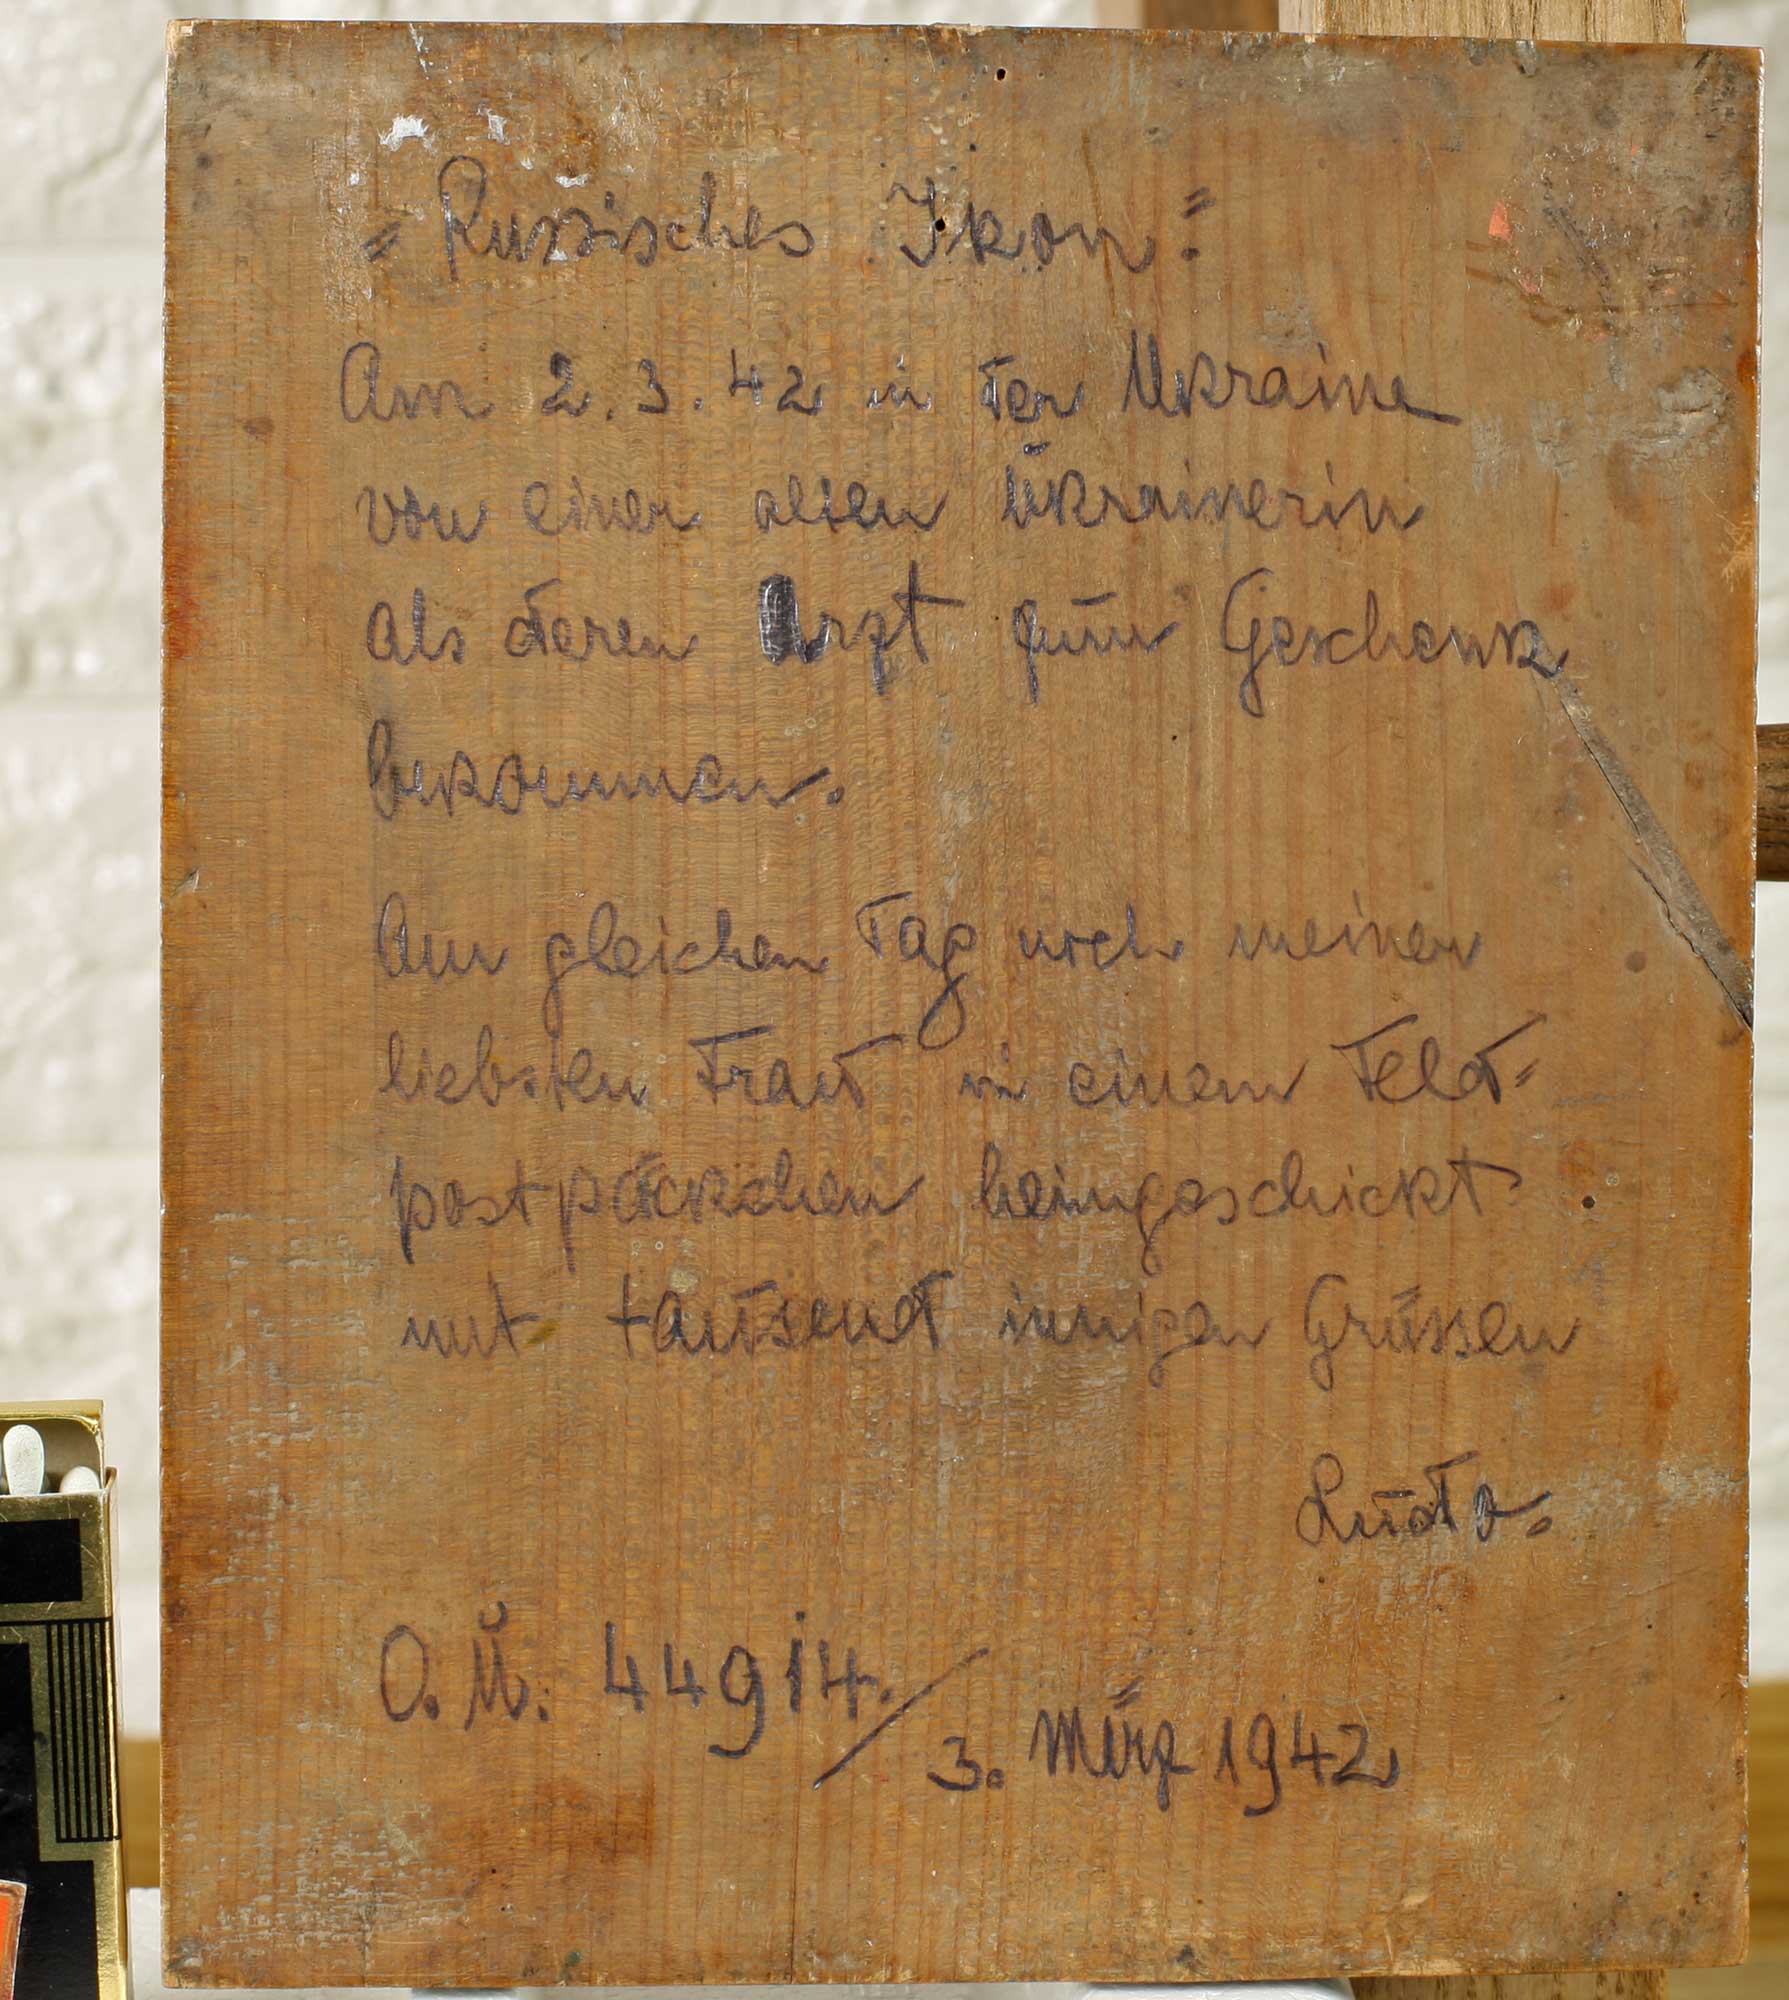 "Russisches Ikon".
Am 2.3.42 in der Ukraine
von einer alten Ukrainerin
als deren Arzt zum Geschenk
bekommen.
Am gleichen Tag noch meiner
liebsten Frau in einem Feld=
postpäckchen heimgeschickt
mit tausend innigen Grüssen
O.U. 44914./
3. März 1942